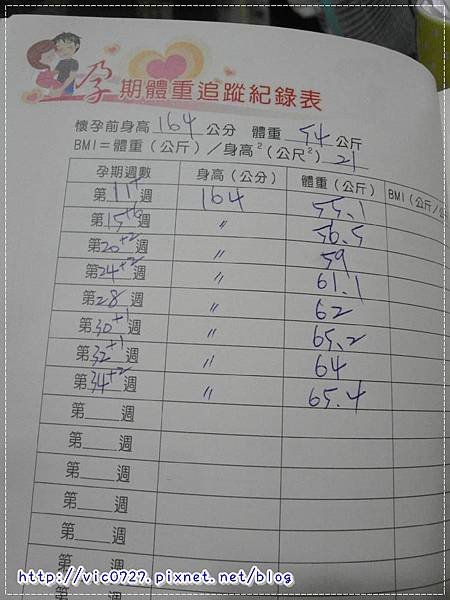 孕期體重追蹤紀錄表
懷孕前身高 164 公分 體重 54 公斤
BMI=體重(公斤)/身高²(公尺²) 21
孕期週數 身高(公分) 體重(公斤) BMI(公斤/公
第 11+ 週 164 55.1
第 15+6 週 〃 56.5
第 20+2 週 〃 59
第 24+2 週 〃 61.1
第 28 週 〃 62
第 30+1 週 〃 65.2
第 32+1 週 〃 64
第 34+2 週 〃 65.4
第 週
第 週
第 週
第 週
第 週
第 週
第 週
http://vic0727.pixnet.net/blog